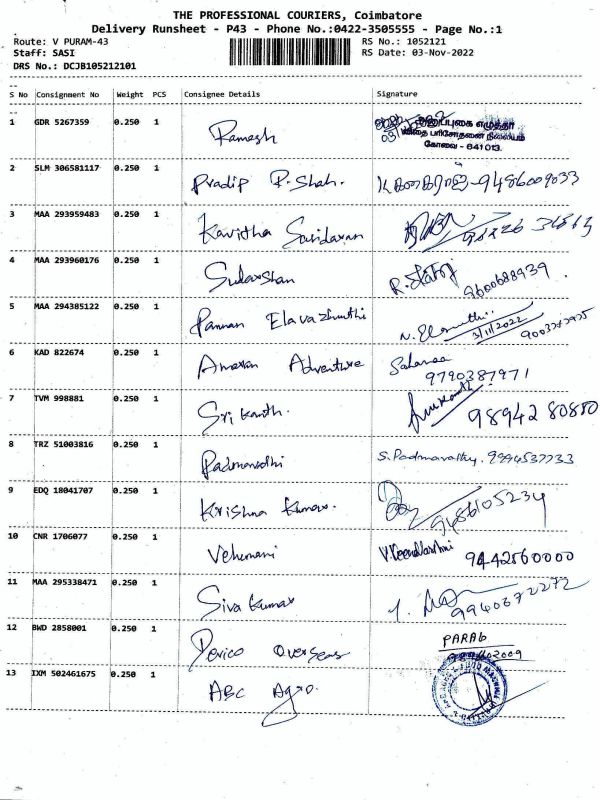 THE PROFESSIONAL COURIERS, Coimbatore
Delivery Runsheet - P43 - Phone No.:0422-3505555 - Page No.:1
Route: V PURAM-43 RS No.: 1052121
Staff: SASI RS Date: 03-Nov-2022
DRS No.: DCJB105212101
S No Consignment No Weight PCS Consignee Details Signature
1 GDR 5267359 0.250 1 Ramesh
விதை பரிசோதனை நிலையம்
கோவை - 641013.
2 SLM 306581117 0.250 1 Pradip R. Shah. K கனகராஜ் - 9486009033
3 MAA 293959483 0.250 1 Kavitha Sasidaran
4 MAA 293960176 0.250 1 Sudarshan 9600688939
5 MAA 294385122 0.250 1 Pannan Elavazhuthi 3/11/2022
6 KAD 822674 0.250 1 Amaran Adventure 9790387971
7 TVM 998881 0.250 1 Sri Kanth. 989428 0880
8 TRZ 51003816 0.250 1 Padmavadhi S. Padmavathy. 9994537733
9 EDQ 18041707 0.250 1 Krishna Kumar. 9486105234
10 CNR 1706077 0.250 1 Vehumani 9442560000
11 MAA 295338471 0.250 1 Siva Kumar 9940372272
12 BWD 2858001 0.250 1 Perico Overseas PARAB
13 IXM 502461675 0.250 1 ABC Agro.